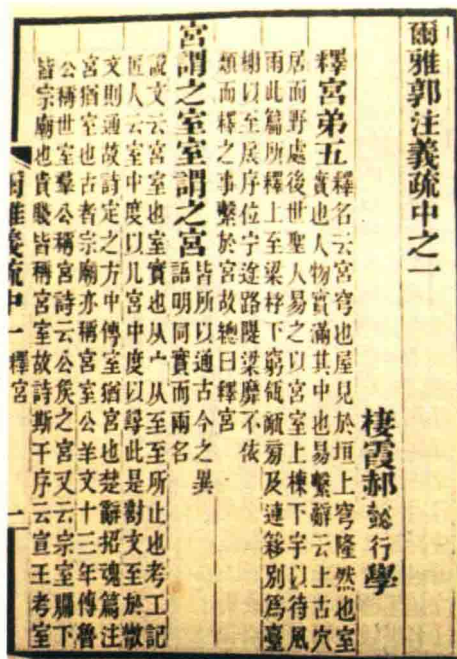 爾雅郭注義疏中之一
棲霞郝懿行學
釋宮弟五
釋名云宮穹也屋見於垣上穹隆然也室
實也人物實滿其中也易繫辭云上古穴
居而野處後世聖人易之以宮室上棟下宇以待風
雨此篇所釋上至梁桴下窮瓴甋旁及連簃別爲臺
榭以至扆序位宁逵路隄梁靡不依
類而釋之事繫於宮故總曰釋宮
宮謂之室室謂之宮
皆所以通古今之異
語明同實而兩名
說文云宮室也室實也从宀从至至所止也考工記
匠人云室中度以几宮中度以尋此是對文至於散
文則通故詩定之方中傳室猶宮也楚辭招魂篇注
宮猶室也古者宗廟亦稱宮室公羊文十三年傳魯
公稱世室羣公稱宮詩云公矦之宮又云宗室牖下
皆宗廟也貴賤皆稱宮室故詩斯干序云宣王考室
爾雅義疏中一 釋宮 一